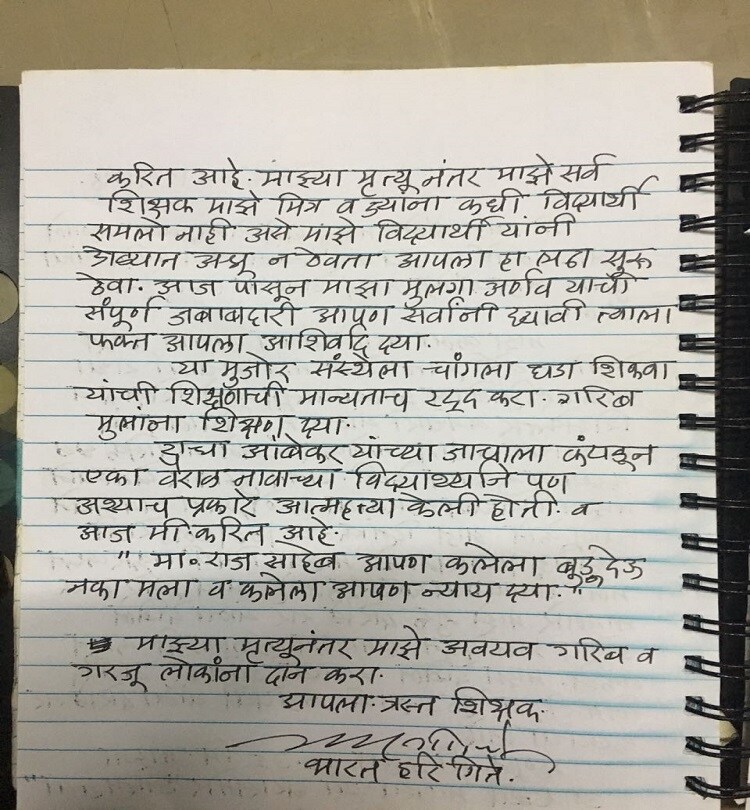 करित आहे. माझ्या मृत्यू नंतर माझे सर्व
शिक्षक माझे मित्र व ज्यांना कधी विद्यार्थी
समलो नाही असे माझे विद्यार्थी यांनी
डोळ्यात अश्रू न ठेवता आपला हा लढा सुरू
ठेवा. आज पासून माझा मुलगा अर्णव याची
संपूर्ण जबाबदारी आपण सर्वांनी घ्यावी त्याला
फक्त आपला आशिर्वाद द्या.
या मुजोर संस्थेला चांगला धडा शिकवा
यांची शिक्षणाची मान्यताच रद्द करा. गरिब
मुलांना शिक्षण द्या.
आंबेकर यांच्या जाचाला कंटाळून
एका नावाच्या विद्यार्थ्यानि पण
अश्याच प्रकारे आत्महत्त्या केली होती. व
आज मी करित आहे.
" मा. राज साहेब आपण कलेला बुडू देऊ
नका मला व कलेला आपण न्याय द्या. "
माझ्या मृत्यूनंतर माझे अवयव गरिब व
गरजू लोकांना दान करा.
आपला त्रस्त शिक्षक.
भारत हरि गिते.